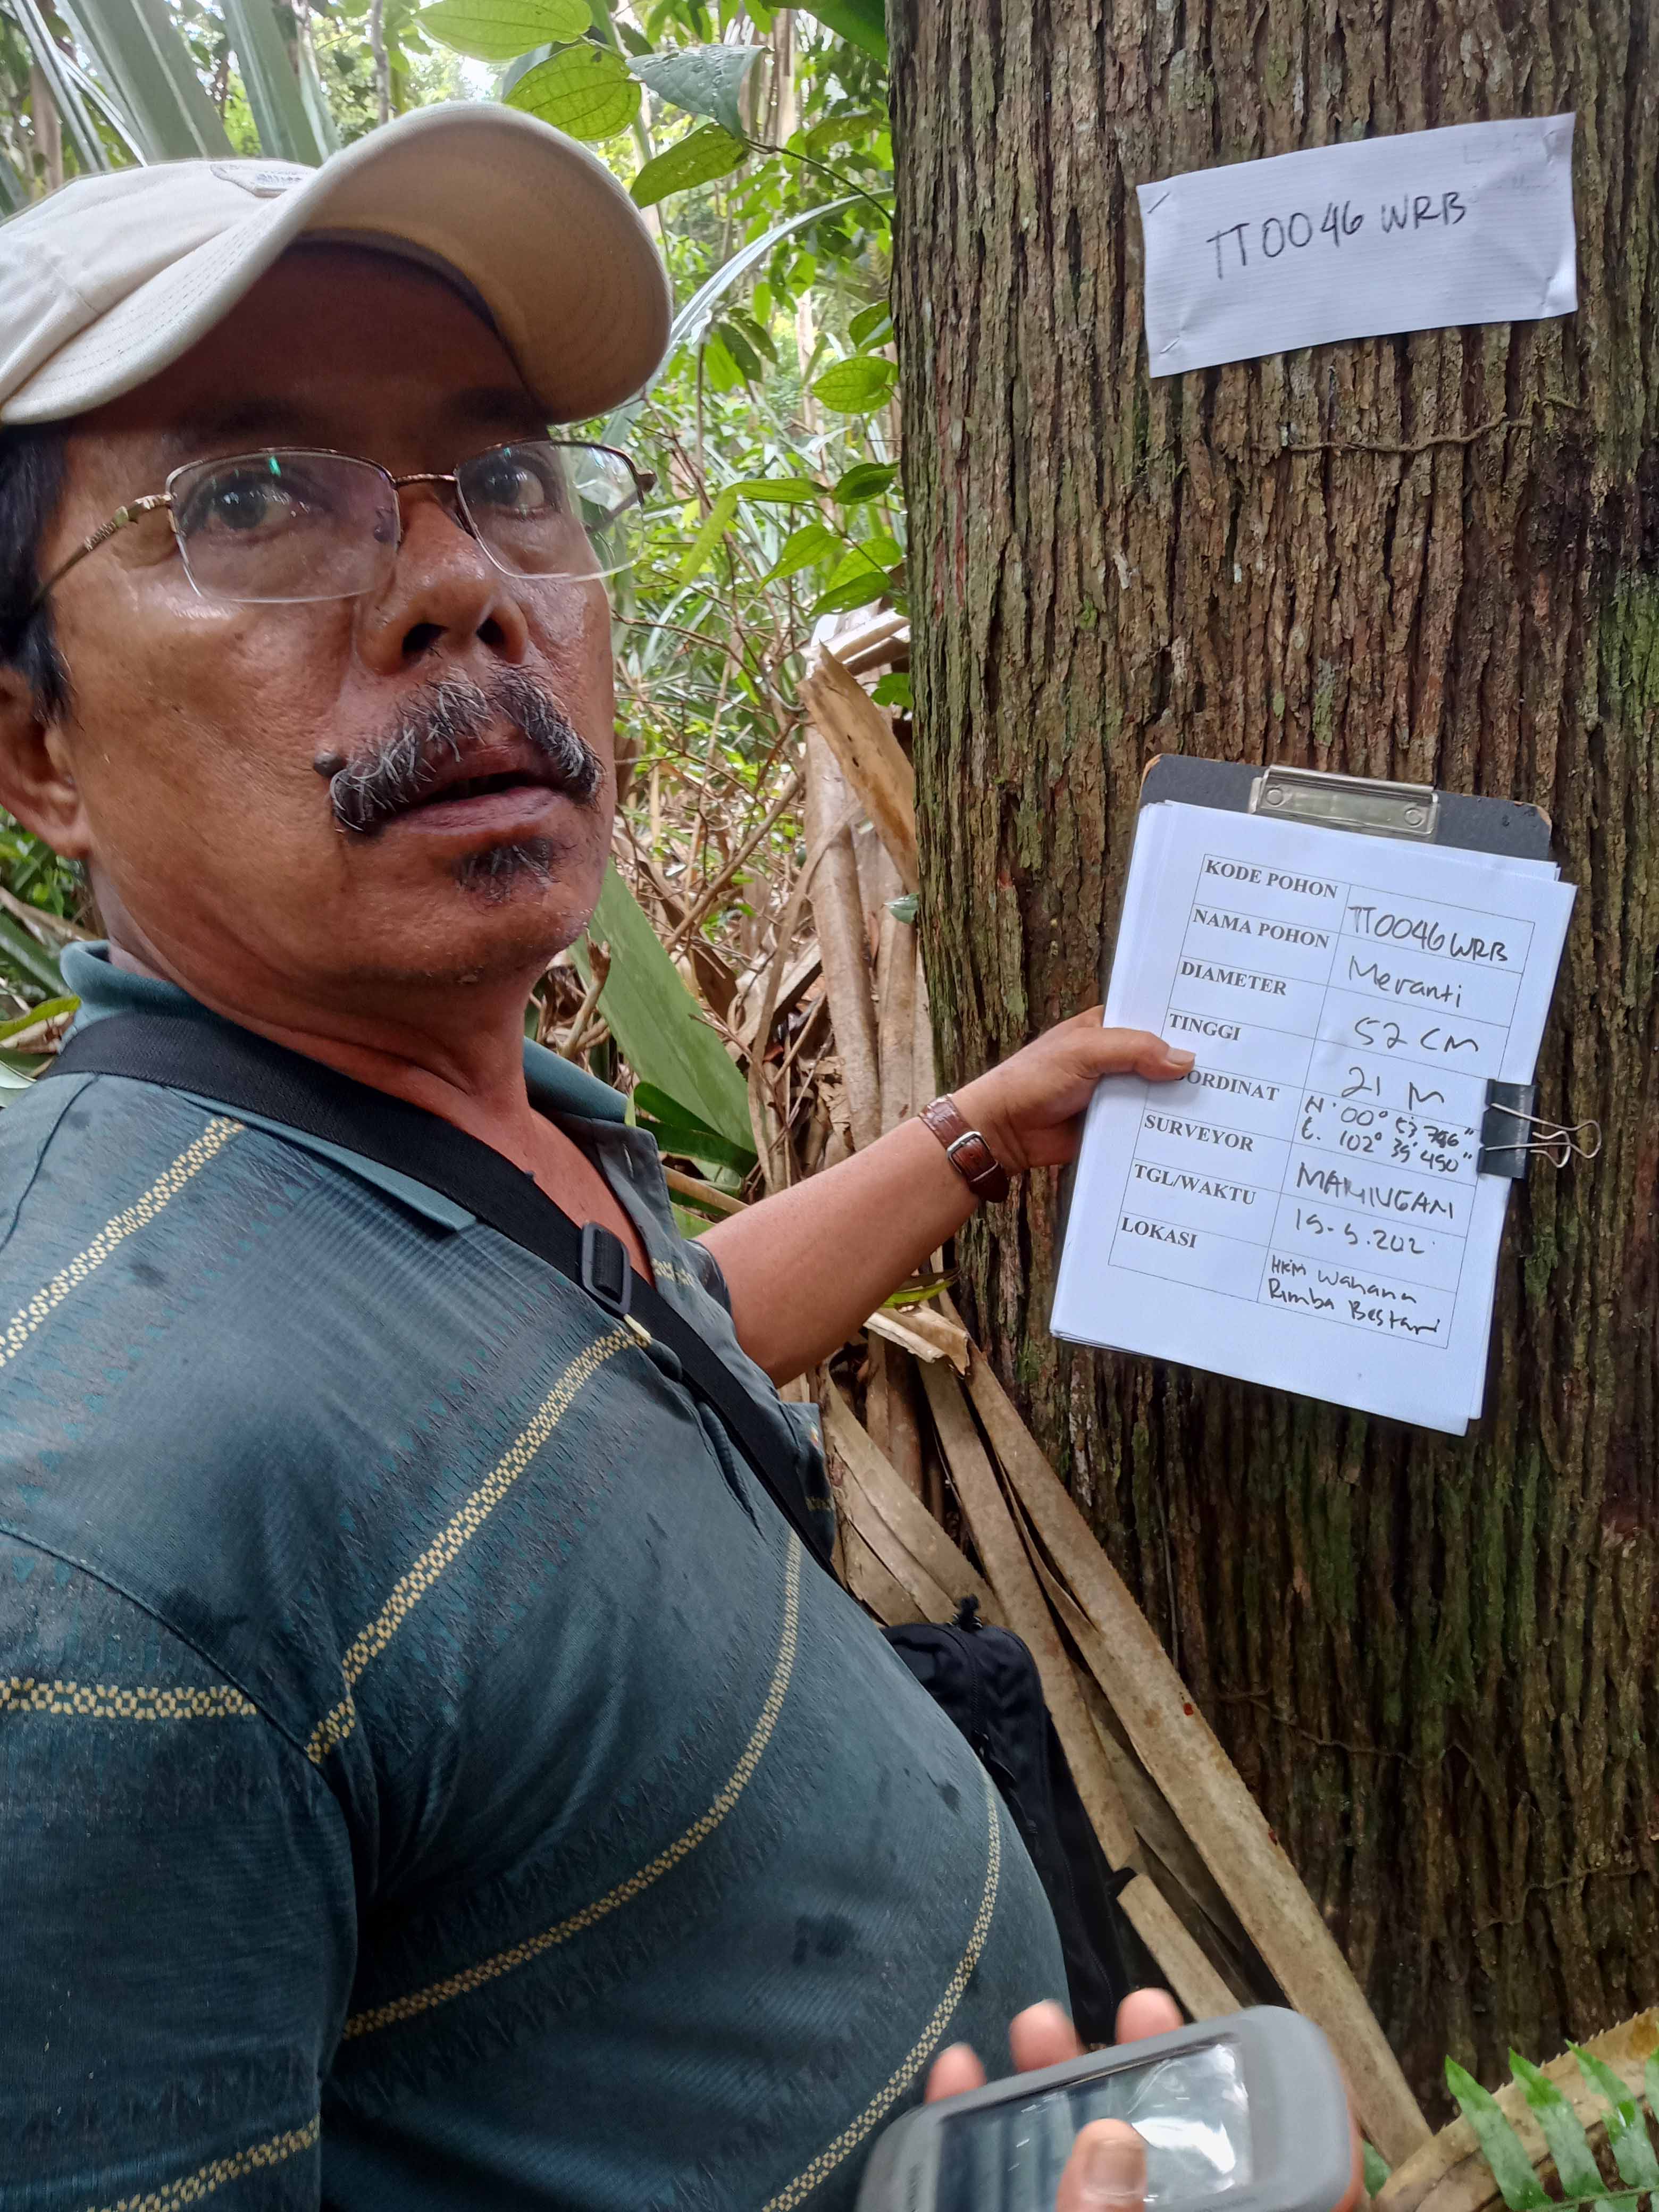 TT0046 WRB
KODE POHON TT0046 WRB
NAMA POHON Meranti
DIAMETER 52 CM
TINGGI 21 M
OORDINAT N. 00° 53' 746"
E. 102° 39' 450"
SURVEYOR
TGL/WAKTU 19-5.202
LOKASI HKM Wahana
Rimba Bestari